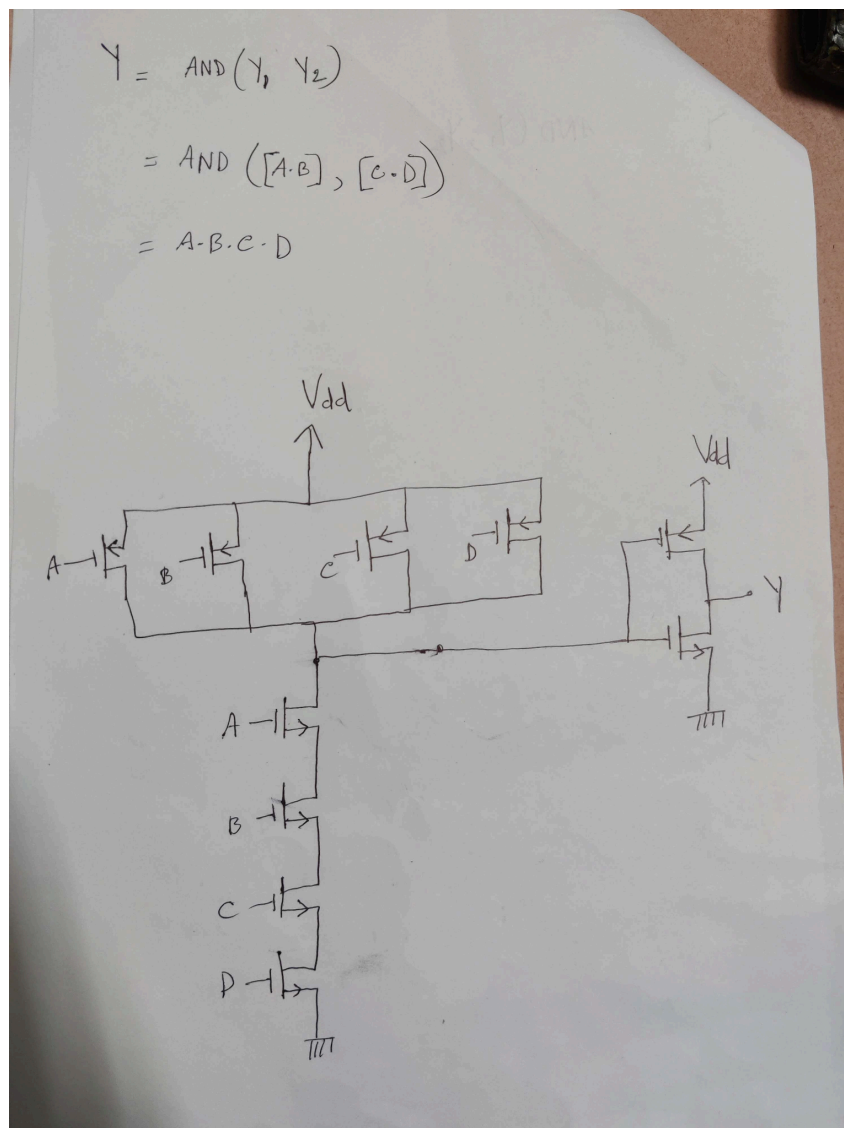 Y = AND (Y₁ Y₂)
= AND ([A·B], [C·D])
= A·B·C·D
Vdd
Vdd
A
B
C
D
Y
A
B
C
D